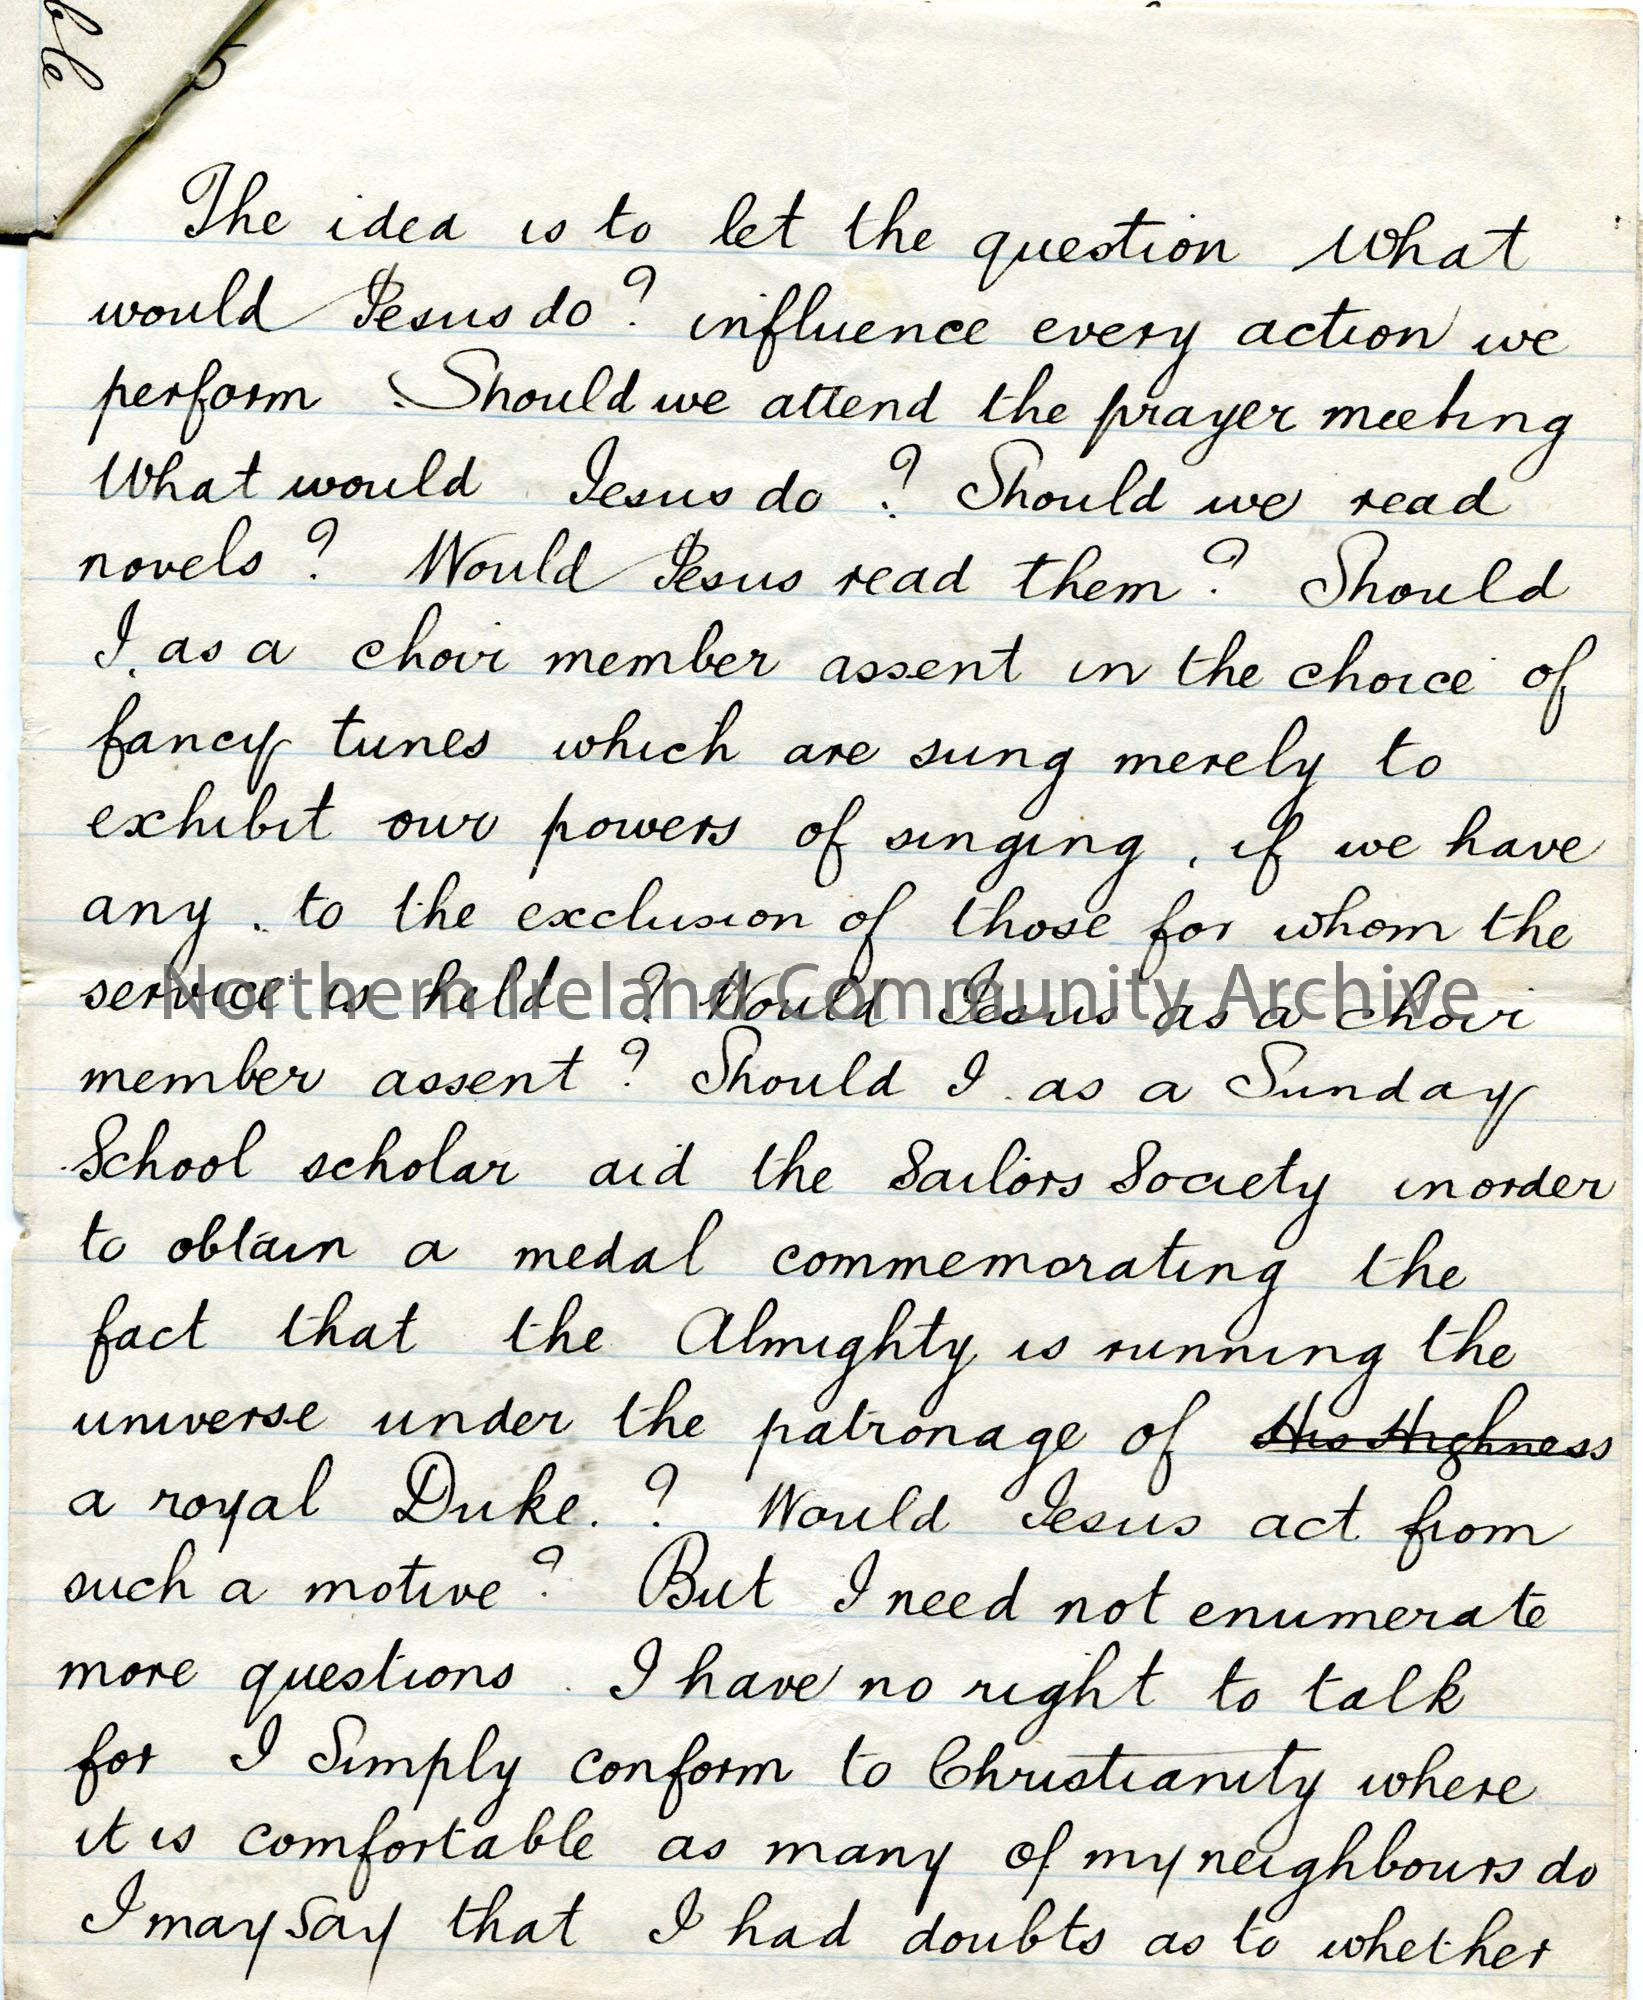 ble
5
The idea is to let the question What
would Jesus do? influence every action we
perform. Should we attend the prayer meeting
What would Jesus do? Should we read
novels? Would Jesus read them? Should
I, as a choir member assent in the choice of
fancy tunes which are sung merely to
exhibit our powers of singing, if we have
any, to the exclusion of those for whom the
service is held? Would Jesus as a choir
Northern Ireland Community Archive
member assent? Should I as a Sunday
School scholar aid the Sailors Society inorder
to obtain a medal commemorating the
fact that the Almighty is running the
universe under the patronage of His Highness
a royal Duke.? Would Jesus act from
such a motive? But I need not enumerate
more questions. I have no right to talk
for I Simply conform to Christianity where
it is comfortable as many of my neighbours do
I may say that I had doubts as to whether